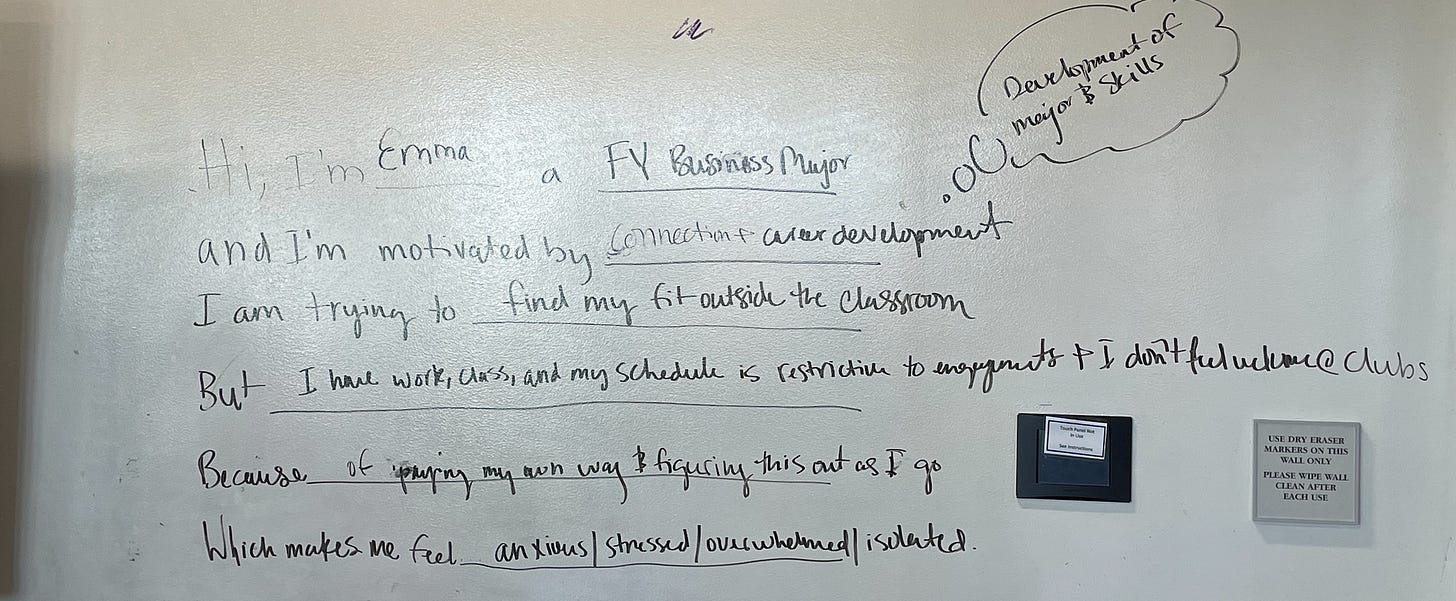 Development of
major & skills
Hi, I'm Emma a FY Business Major
and I'm motivated by Connection + career development
I am trying to find my fit outside the classroom
But I have work, class, and my schedule is restrictive to engagements + I don't feel welcome @ clubs
Because of paying my own way & figuring this out as I go
Which makes me feel anxious/stressed/overwhelmed/isolated.
Touch Panel Not
In Use
See Instructions
USE DRY ERASER
MARKERS ON THIS
WALL ONLY
PLEASE WIPE WALL
CLEAN AFTER
EACH USE